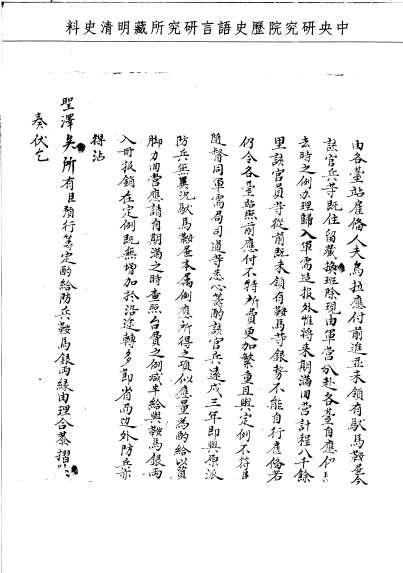 中央研究院歷史語言研究所藏明清史料
由各臺站雇備人夫烏拉應付前進並未領有馱馬鞍屉今
該官兵等既住留藏換班除現由軍營分赴各臺自應仍
去時之例辦理歸入軍需造報外惟將來期滿回營計程八千餘
里該官員等從前既未領有鞍馬等銀勢不能自行雇備若
仍令各臺站照前應付不特所費更加繁重且與定例不符臣
隨督同軍需局司道等悉心籌酌該官兵遠戍三年即與原派
防兵無異況馱馬鞍屉本屬例應所得之項似應量為酌給以資
脚力回營應請自期滿之時查照台費之例減半給與鞍馬銀兩
入冊報銷在定例既無增加於沿途轉多節省而邊外防兵亦
得沾
聖澤矣所有臣預行籌定酌給防兵鞍馬銀兩緣由理合恭摺
奏伏乞